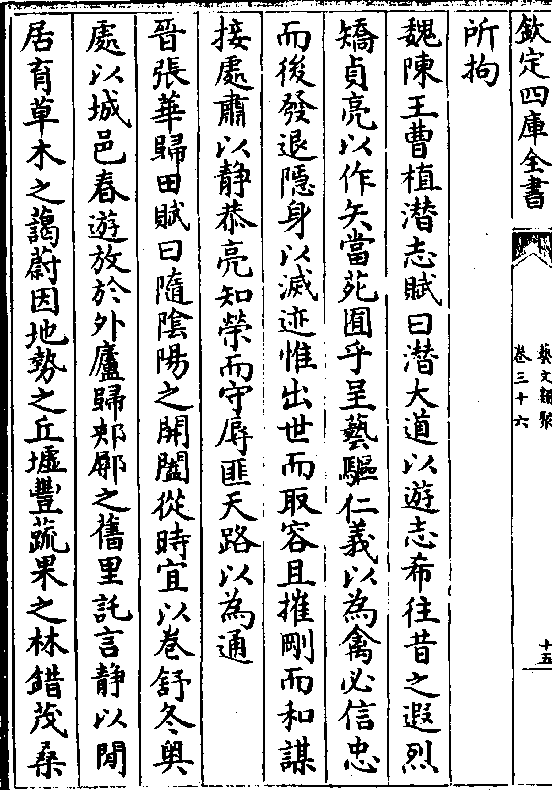 欽定四庫全書
藝文類聚
卷三十六
十五
所拘
魏陳王曹植潜志賦曰潜大道以遊志希往昔之遐烈
矯貞亮以作矢當苑囿乎呈藝驅仁義以為禽必信忠
而後發退隱身以滅迹惟出世而取容且摧剛而和謀
接處肅以静恭亮知榮而守辱匪天路以為通
晉張華歸田賦曰隨陰陽之開闔從時宜以卷舒冬奥
處以城邑春遊放於外廬歸郟鄏之舊里託言静以閒
居育草木之藹蔚因地勢之丘墟豐蔬果之林錯茂桑